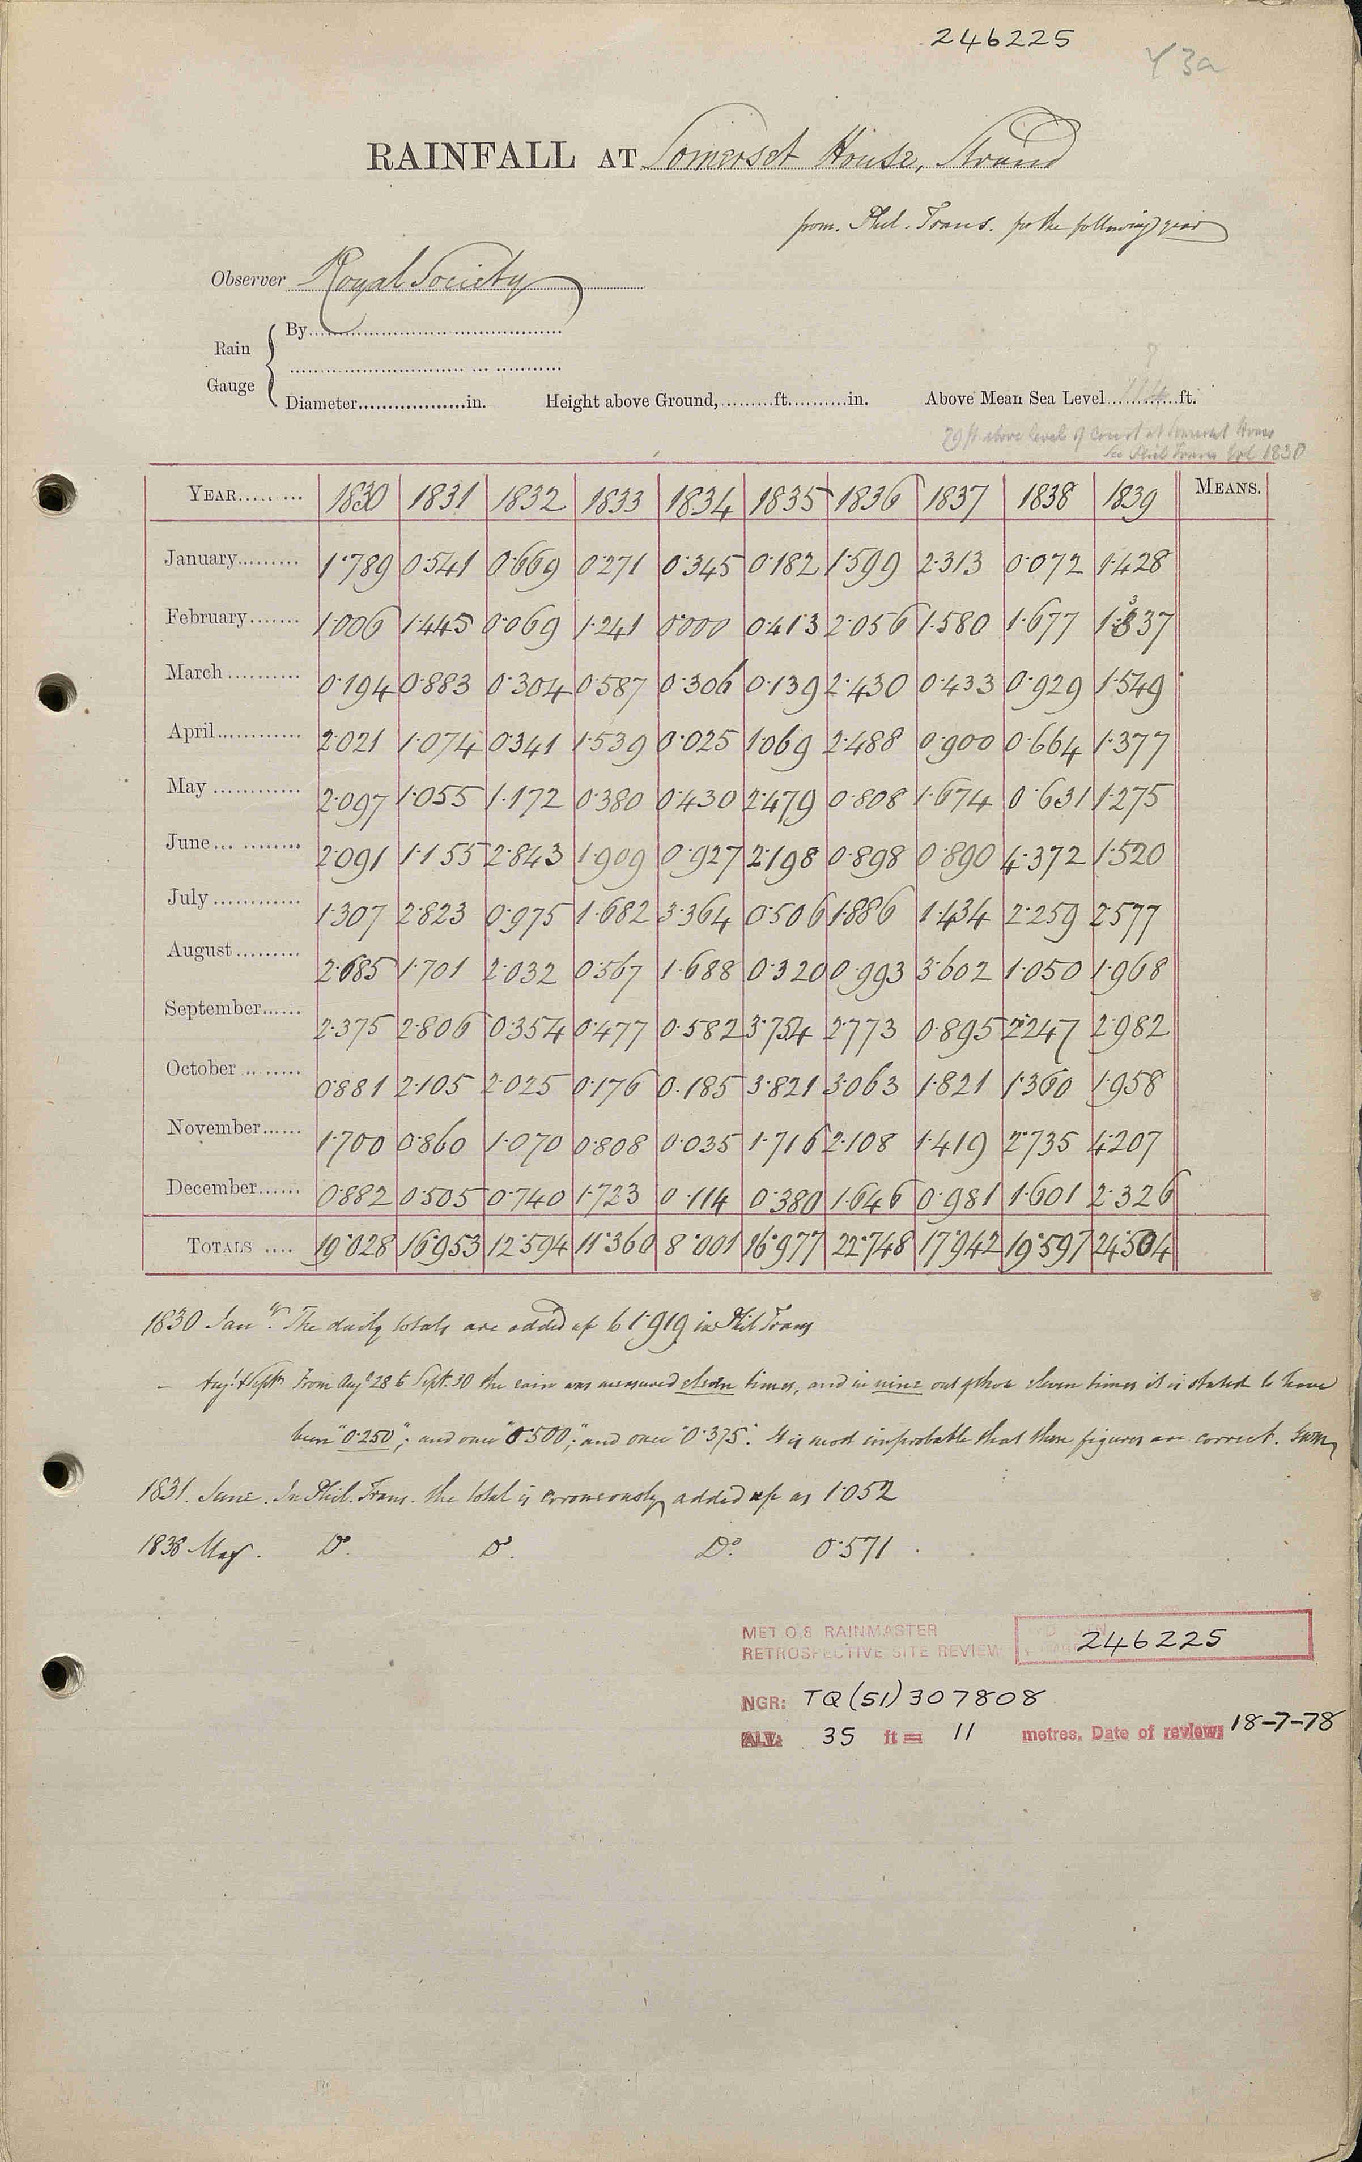 246225
Y 3a
RAINFALL AT Somerset House, Strand
from. Phil. Trans. for the following year
Observer Royal Society
Rain Gauge
By
Diameter in. Height above Ground, ft. in. Above Mean Sea Level ft.
79 ft above level of Court at Somerset House
See Phil Trans Vol 1830
YEAR 1830 1831 1832 1833 1834 1835 1836 1837 1838 1839 MEANS.
January 1·789 0·541 0·669 0·271 0·345 0·182 1·599 2·313 0·072 1·428
February 1·006 1·445 0·069 1·241 0·000 0·413 2·056 1·580 1·677 1·337
March 0·194 0·883 0·304 0·587 0·306 0·139 2·430 0·433 0·929 1·549
April 2·021 1·074 0·341 1·539 0·025 1·069 2·488 0·900 0·664 1·377
May 2·097 1·055 1·172 0·380 0·430 2·479 0·808 1·674 0·631 1·275
June 2·091 1·155 2·843 1·909 0·927 2·198 0·898 0·890 4·372 1·520
July 1·307 2·823 0·975 1·682 3·364 0·506 1·886 1·434 2·259 2·577
August 2·685 1·701 2·032 0·567 1·688 0·320 0·993 3·602 1·050 1·968
September 2·375 2·806 0·354 0·477 0·582 3·754 2·773 0·895 2·247 2·982
October 0·881 2·105 2·025 0·176 0·185 3·821 3·063 1·821 1·360 1·958
November 1·700 0·860 1·070 0·808 0·035 1·716 2·108 1·419 2·735 4·207
December 0·882 0·505 0·740 1·723 0·114 0·380 1·646 0·981 1·601 2·326
TOTALS 19·028 16·953 12·594 11·360 8·001 16·977 22·748 17·942 19·597 24·504
1830 Jany. The daily totals are added up to 1·919 in Phil Trans
— Augt. & Septr. From Augt 28 to Sept. 30 the rain was measured eleven times, and in nine out of those eleven times it is stated to have
been "0·250"; and once "0·500"; and once "0·375". It is most improbable that these figures are correct.
1831. June. In Phil. Trans. the total is erroneously added up as 1·052
1838 May. Do. Do. Do. 0·571
MET O 8 RAINMASTER
RETROSPECTIVE SITE REVIEW 246225
NGR: TQ (51) 307808
ALT: 35 ft = 11 metres. Date of review: 18-7-78